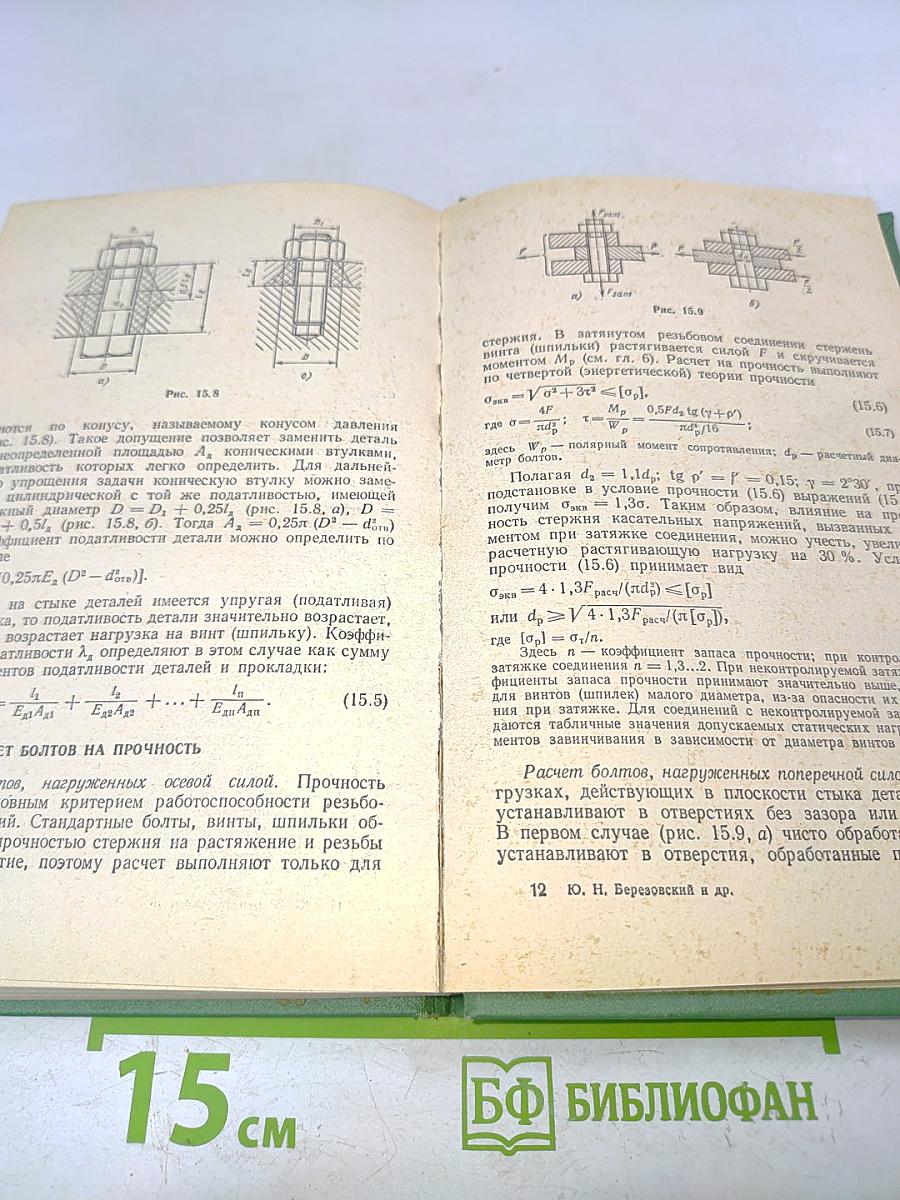 Рис. 15.8
ются по конусу, называемому конусом давления
с. 15.8). Такое допущение позволяет заменить деталь
неопределенной площадью Aд коническими втулками,
атливость которых легко определить. Для дальней-
о упрощения задачи коническую втулку можно заме-
цилиндрической с той же податливостью, имеющей
жный диаметр D = D₁ + 0,25lд (рис. 15.8, а), D =
+ 0,5lд (рис. 15.8, б). Тогда Aд = 0,25π (D² — d²отв)
ффициент податливости детали можно определить по
ле
0,25πEд (D² — d²отв)].
на стыке деталей имеется упругая (податливая)
ка, то податливость детали значительно возрастает,
возрастает нагрузка на винт (шпильку). Коэффи-
атливости λд определяют в этом случае как сумму
ентов податливости деталей и прокладки:
= l₁/(Eд1Aд1) + l₂/(Eд2Aд2) + ... + lп/(EдпAдп). (15.5)
ЕТ БОЛТОВ НА ПРОЧНОСТЬ
тов, нагруженных осевой силой. Прочность
овным критерием работоспособности резьбо-
ий. Стандартные болты, винты, шпильки об-
прочностью стержня на растяжение и резьбы
тие, поэтому расчет выполняют только для
Fзат
а) б)
Рис. 15.9
стержня. В затянутом резьбовом соединении стержень
винта (шпильки) растягивается силой F и скручивается
моментом Mр (см. гл. 6). Расчет на прочность выполняют
по четвертой (энергетической) теории прочности
σэкв = √(σ² + 3τ²) ≤ [σр], (15.6)
где σ = 4F/(πd²р); τ = Mр/Wр = 0,5Fd₂ tg (γ + ρ′)/(πd³р/16); (15.7)
здесь Wр — полярный момент сопротивления; dр — расчетный диа-
метр болтов.
Полагая d₂ = 1,1dр; tg ρ′ = f′ = 0,15; γ = 2°30′, пр
подстановке в условие прочности (15.6) выражений (15
получим σэкв = 1,3σ. Таким образом, влияние на про
ность стержня касательных напряжений, вызванных
ментом при затяжке соединения, можно учесть, увели
расчетную растягивающую нагрузку на 30 %. Усл
прочности (15.6) принимает вид
σэкв = 4 · 1,3Fрасч/(πd²р) ≤ [σр]
или dр ≥ √(4 · 1,3Fрасч/(π[σр])),
где [σр] = σт/n.
Здесь n — коэффициент запаса прочности; при контро
затяжке соединения n = 1,3...2. При неконтролируемой затяж
фициенты запаса прочности принимают значительно выше,
для винтов (шпилек) малого диаметра, из-за опасности их
ния при затяжке. Для соединений с неконтролируемой за
даются табличные значения допускаемых статических нагр
ментов завинчивания в зависимости от диаметра винтов
Расчет болтов, нагруженных поперечной сило
грузках, действующих в плоскости стыка дета
устанавливают в отверстиях без зазора или
В первом случае (рис. 15.9, а) чисто обработа
устанавливают в отверстия, обработанные п
12 Ю. Н. Березовский и др.
15 см
БФ БИБЛИОФАН